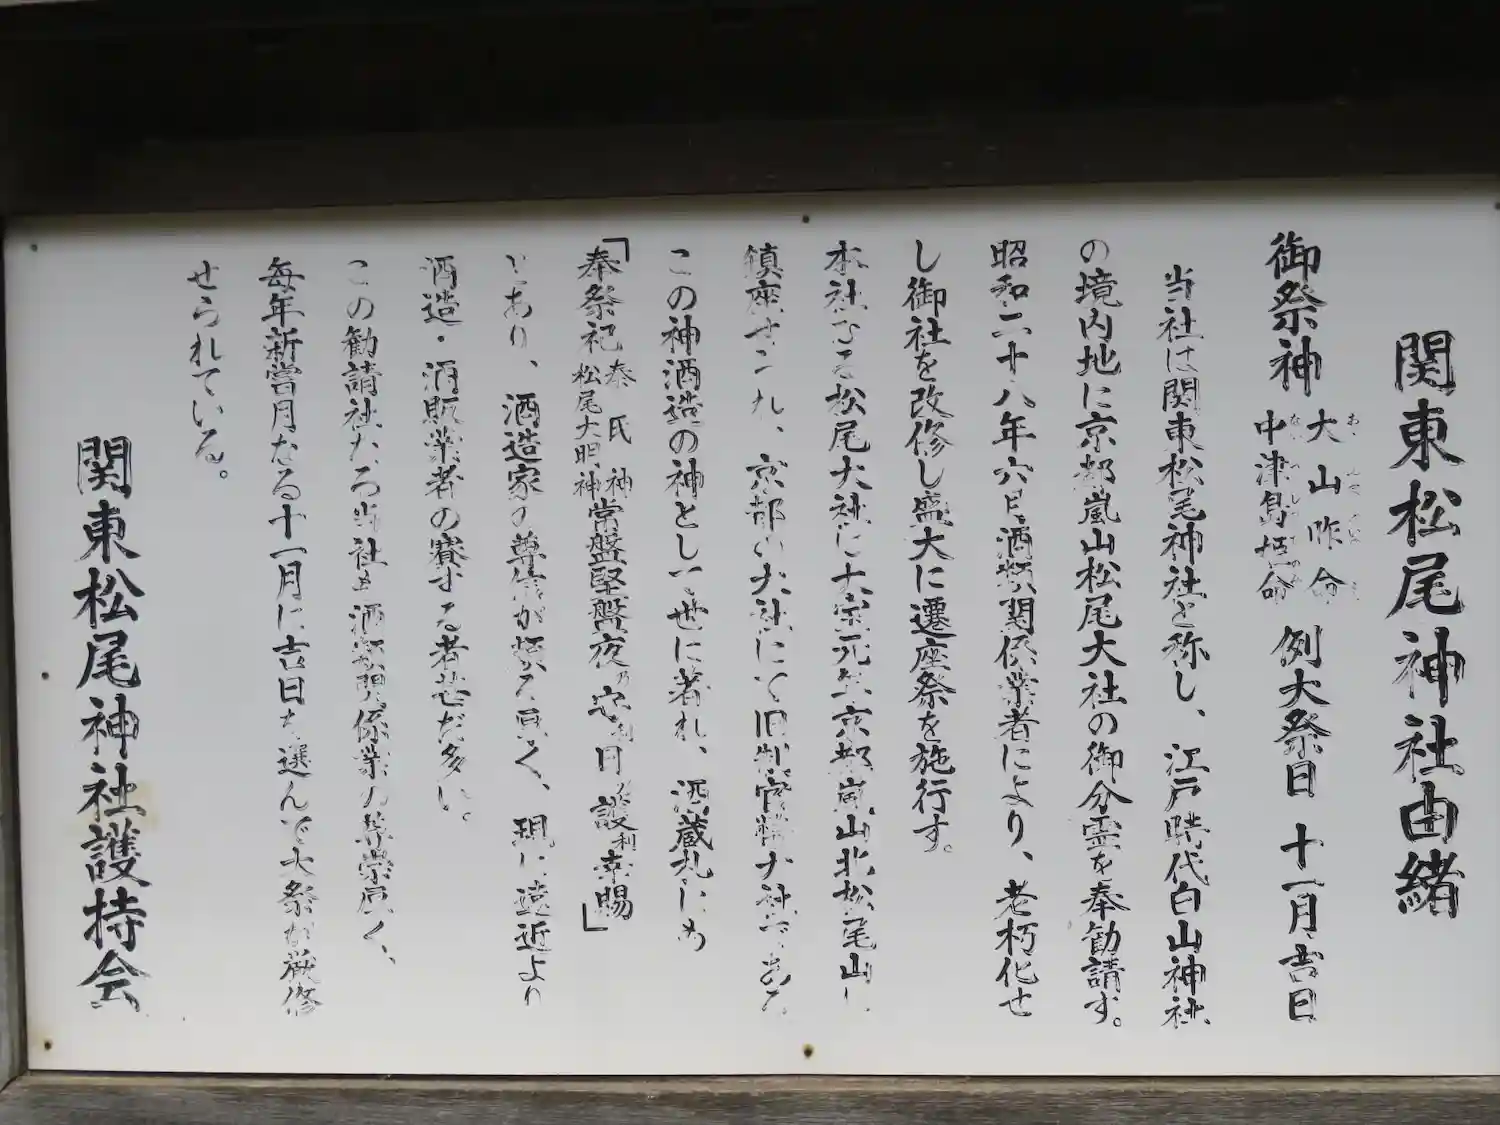 関東松尾神社由緒
御祭神 大山咋命 中津島姫命 例大祭日 十一月吉日
当社は関東松尾神社と称し、江戸時代白山神社
の境内地に京都嵐山松尾大社の御分霊を奉勧請す。
昭和二十八年六月、酒類関係業者により、老朽化せ
し御社を改修し盛大に遷座祭を施行す。
本社なる松尾大社は大宝元年京都嵐山北松尾山に
鎮座せられ、京都の大社にて旧制官幣大社である
この神酒造の神として世に著れ、酒蔵札にも
「奉祭祀 秦氏神 松尾大明神 常盤堅盤夜乃守日乃護利幸賜」
とあり、酒造家の尊信が頗る厚く、現に遠近より
酒造・酒販業者の賽する者甚だ多い。
この勧請社たる当社も酒類関係業の尊崇厚く、
毎年新嘗月なる十一月に吉日を選んで大祭が厳修
せられている。
関東松尾神社護持会